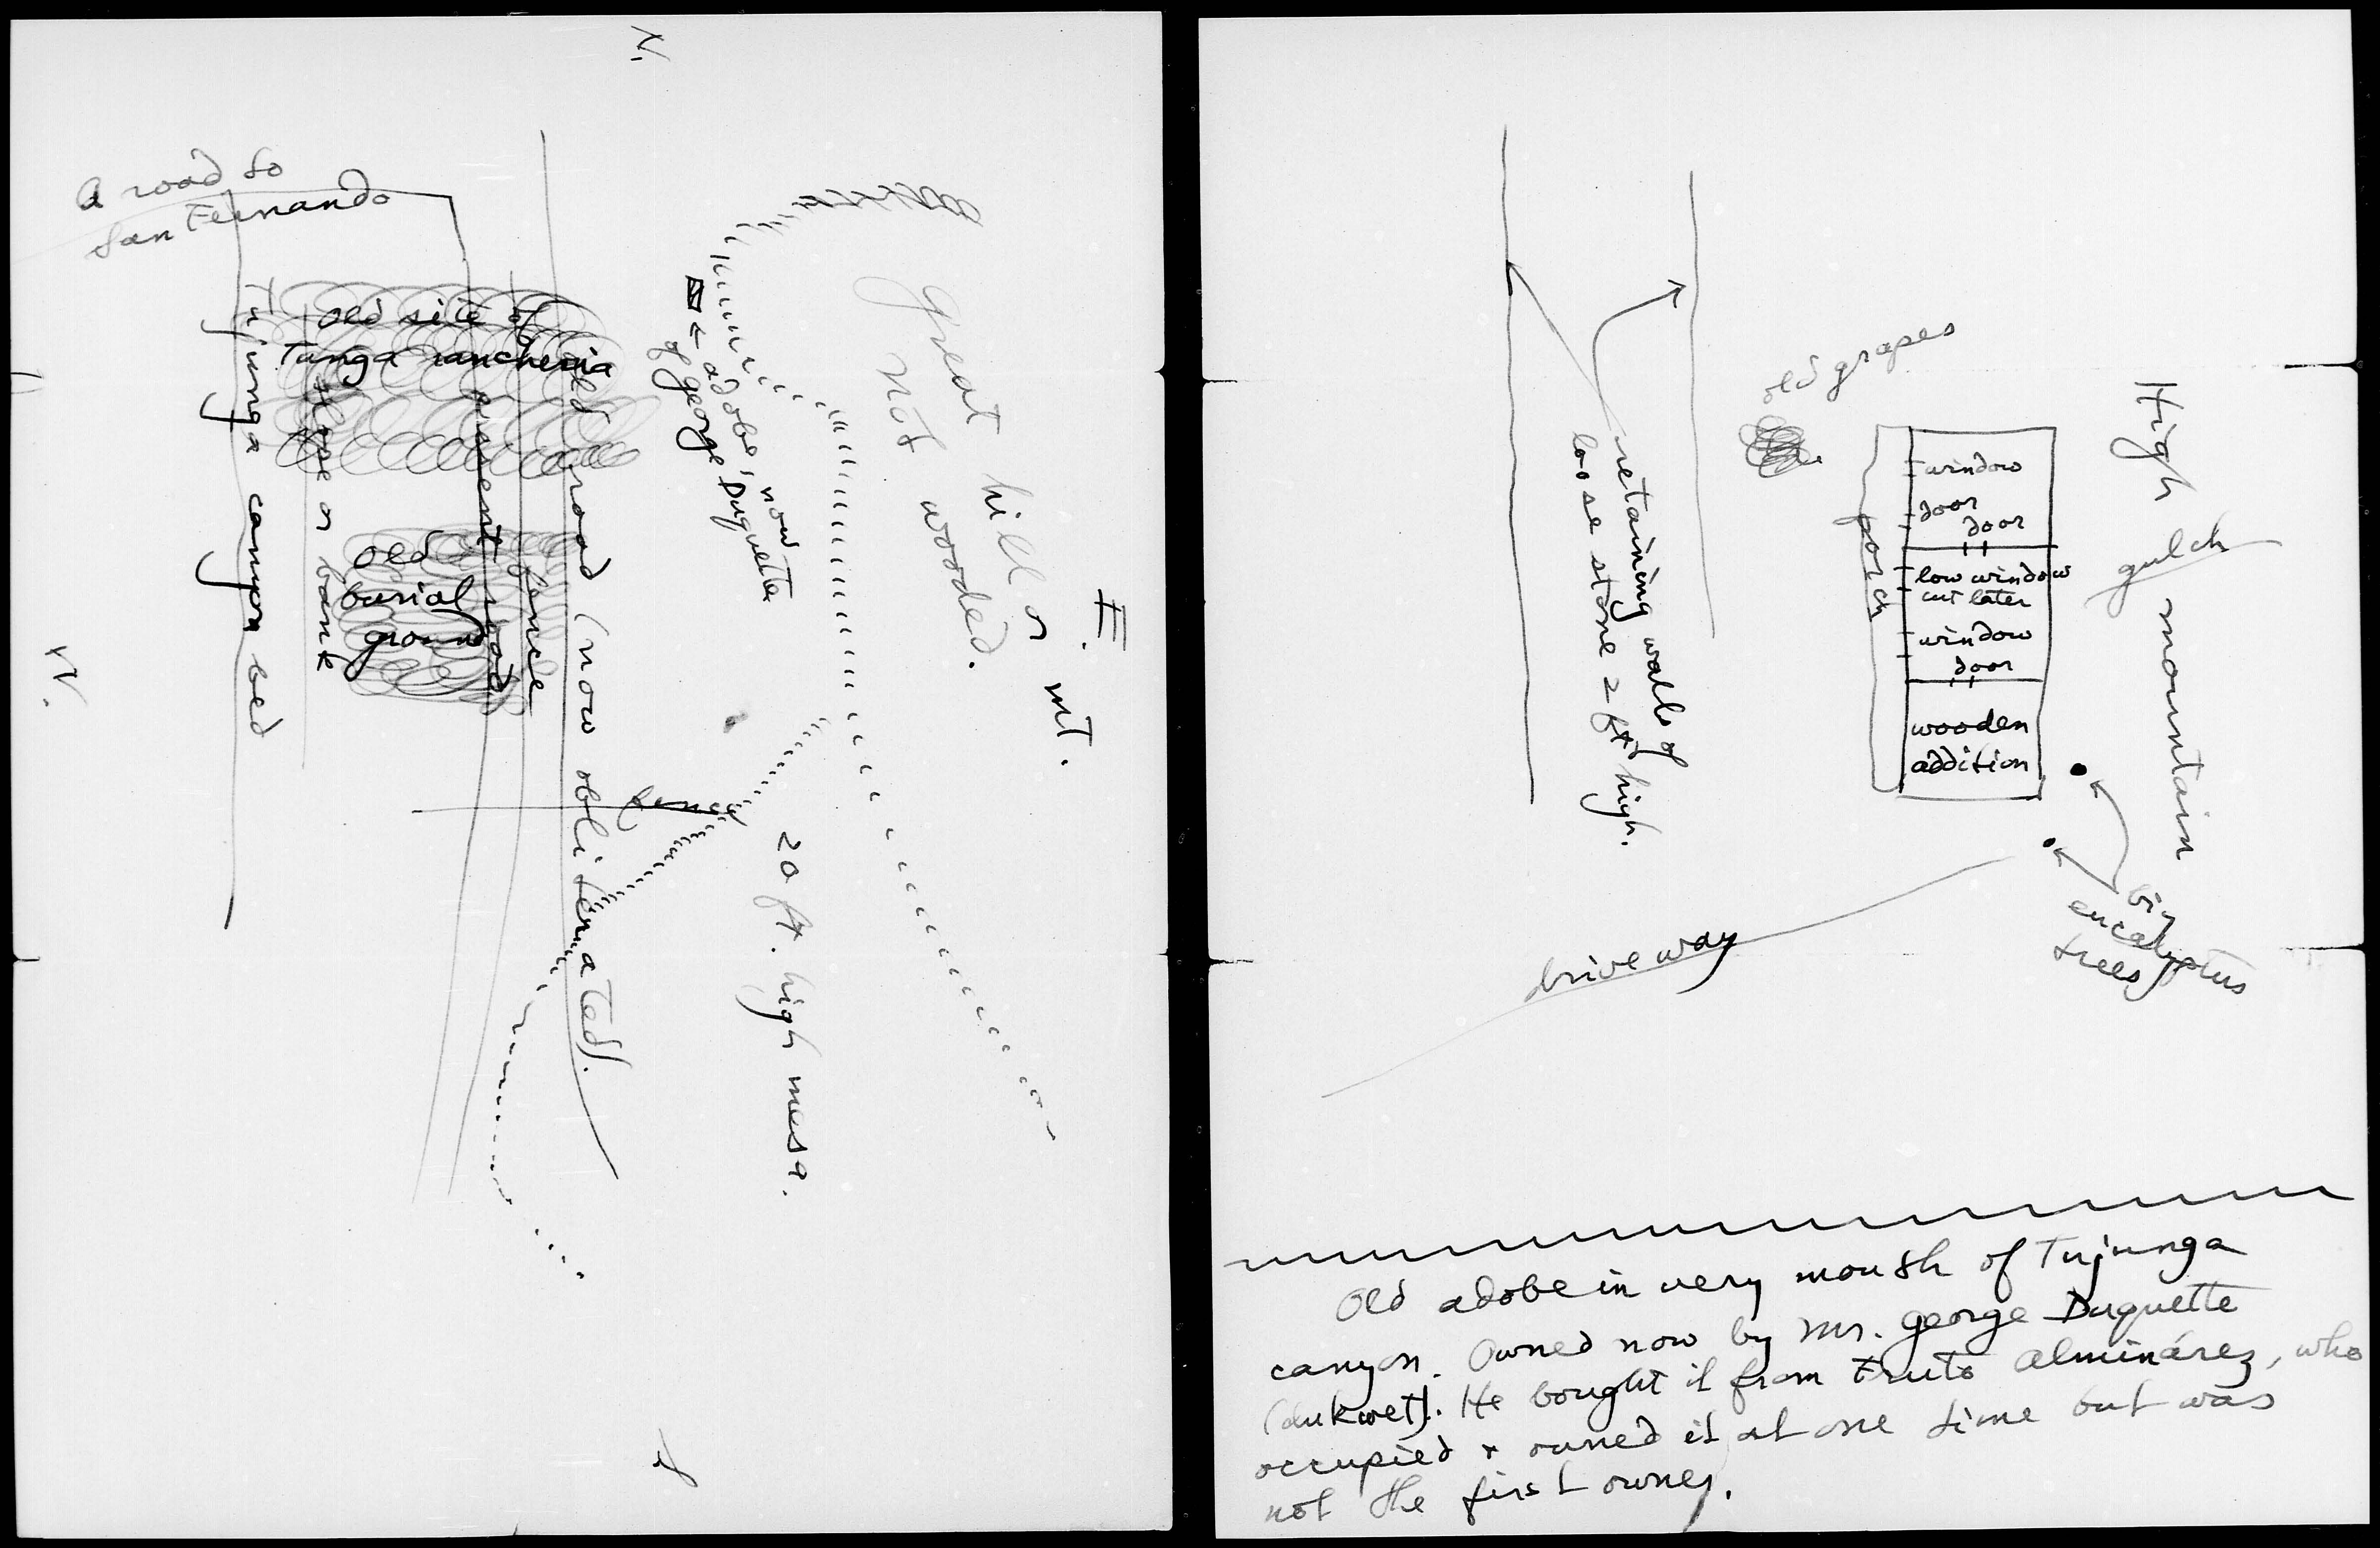 N.
a road to
San Fernando
old site of
Tunga rancheria
Tujunga canyon bed
slope or bank
old
burial
ground
present road
fence
old road (now obliterated).
← adobe, now
of George Duquette
Great hill or mt.
not wooded.
E.
W.
fence
20 ft. high mesa.
S
old grapes
retaining walls of
loose stone 2 ft high.
porch
window
door
door
low window
cut later
window
door
wooden
addition
High mountain
gulch
big
eucalyptus
trees
driveway
Old adobe in very mouth of Tujunga
canyon. Owned now by Mr. George Duquette
(dukwet). He bought it from Fruto Alminárez, who
occupied + owned it at one time but was
not the first owner.